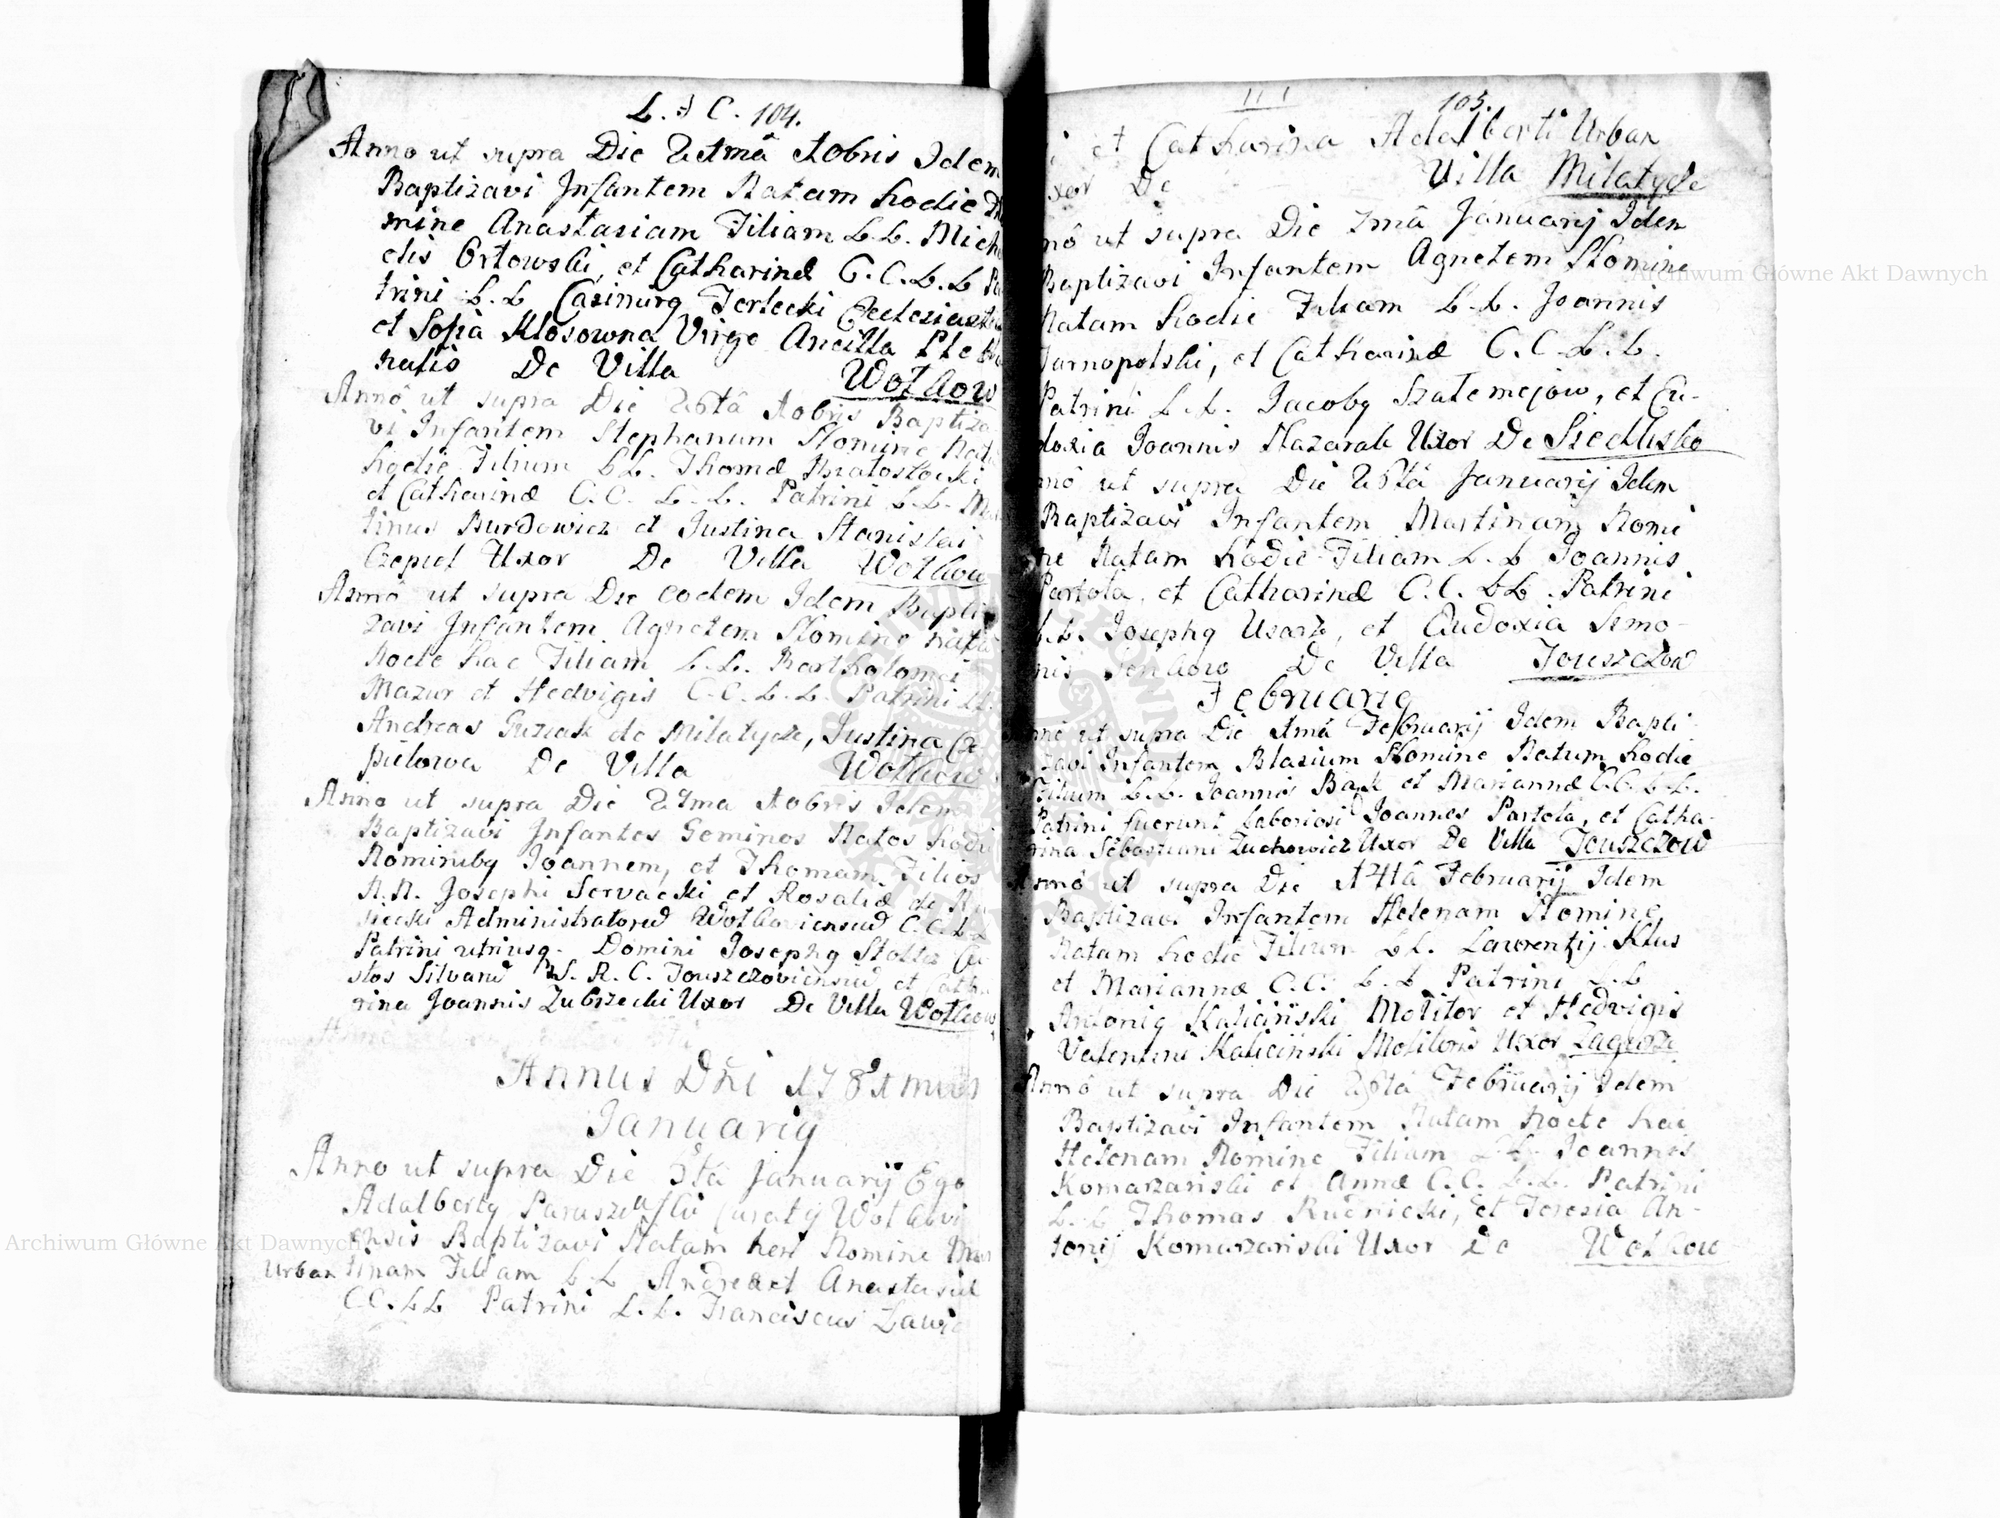 L. J C. 104.
Anno ut supra Die Xbris Idem
Baptizavi Infantem Natam hodie
mine Anastasiam Filiam L.L. Mich
elis Ortowski, et Catharinæ C.C.L.L Pa
trini L.L Casimirg Terlecki Ecclesiast
et Sofia Klosowna Virgo Ancilla Ple
nalis De Villa Wotkow
Annô ut supra Die Xbris Baptiza
vi Infantem Stephanum Nomine Nat
hodie Filium L.L. Thomæ
et Catharinæ C.C. L.L. Patrini L.L. Ma
tinus Burdowicz et Justina Stanislai
Czepiel Uxor De Villa Wotkow
Annô ut supra Die eodem Idem Bapti
zavi Infantem Agnetem Nomine nata
Nocte hac Filiam L.L. Bartholomei
Mazur et Hedvigis C.C.L.L Patrini LL.
Andreas Guzeak de Milatycze, Justina Cze
pielowa De Villa Wotkow
Anno ut supra Die Xbris Idem
Baptizavi Infantes Geminos Natos hodie
Nominibg Joannem, et Thomam Filios
N.N. Josephi Servacki et Rosaliæ de
siecki Administratored Wotkoviensied C.C.L.L
Patrini utriusq. Domini Josephg Stolter Cu
stos Silvared S. R. C. Touszczoviensied, et Catha
rina Joannis Zubrzecki Uxor De Villa Wotkow
Annus Dñi 1781mus
Januarig
Anno ut supra Die 5tâ Januarij Ego
Adalbertg Paruszewski Curatg Wotkovi
ensis Baptizavi Natam heri Nomine Mar
Urban tinam Filiam L.L Andreæ et Anastasiæ
CC.LL Patrini L.L. Franciscus Zawi
105.
et Catharina Adalberti Urban
Uxor De Villa Milatycze
nô ut supra Die 7mâ Januarij Idem
Baptizavi Infantem Agnetem Nomine
Natam hodie Filiam L.L. Joannis
Tarnopolski, et Catharinæ C.C.L.L.
Patrini L.L. Jacobg Szatemejow, et Eu-
doxia Joannis Nazarak Uxor De Siedlisko
nô ut supra Die 26tâ Januarij Idem
Baptizavi Infantem Martinam Nomi
ne Natam hodie Filiam L.L Joannis
Partola, et Catharinæ C.C. LL. Patrini
L.L. Josephg Usarz, et Eudoxia Simo-
nis Senkow De Villa Touszczow
Februarig
Annô ut supra Die 1mâ Februarij Idem Bapti-
zavi Infantem Blasium Nomine Natum hodie
Filium L.L. Joannis Bąk et Mariannæ C.C.L.L.
Patrini fuerunt Laboriosi Joannes Partola, et Catha-
rina Sebastiani Zuchowicz Uxor De Villa Touszczow
Annô ut supra Die 14tâ Februarij Idem
Baptizavi Infantem Helenam Nomine
Natam hodie Filium L.L. Laurentij Klus
et Mariannæ C.C. L.L Patrini L.L
Antonig Kaliciński Molitor et Hedvigis
Valentini Kaliciński Molitoris Uxor Zagurze
Annô ut supra Die 26tâ Februarij Idem
Baptizavi Infantem Natam Nocte hac
Helenam Nomine Filiam L.L. Joannis
Komarzański et Annæ C.C. L.L. Patrini
L.L Thomas Rudnicki, Et Teresia An-
tonij Komarzański Uxor De Wotkow
Archiwum Główne Akt Dawnych
Archiwum Główne Akt Dawnych